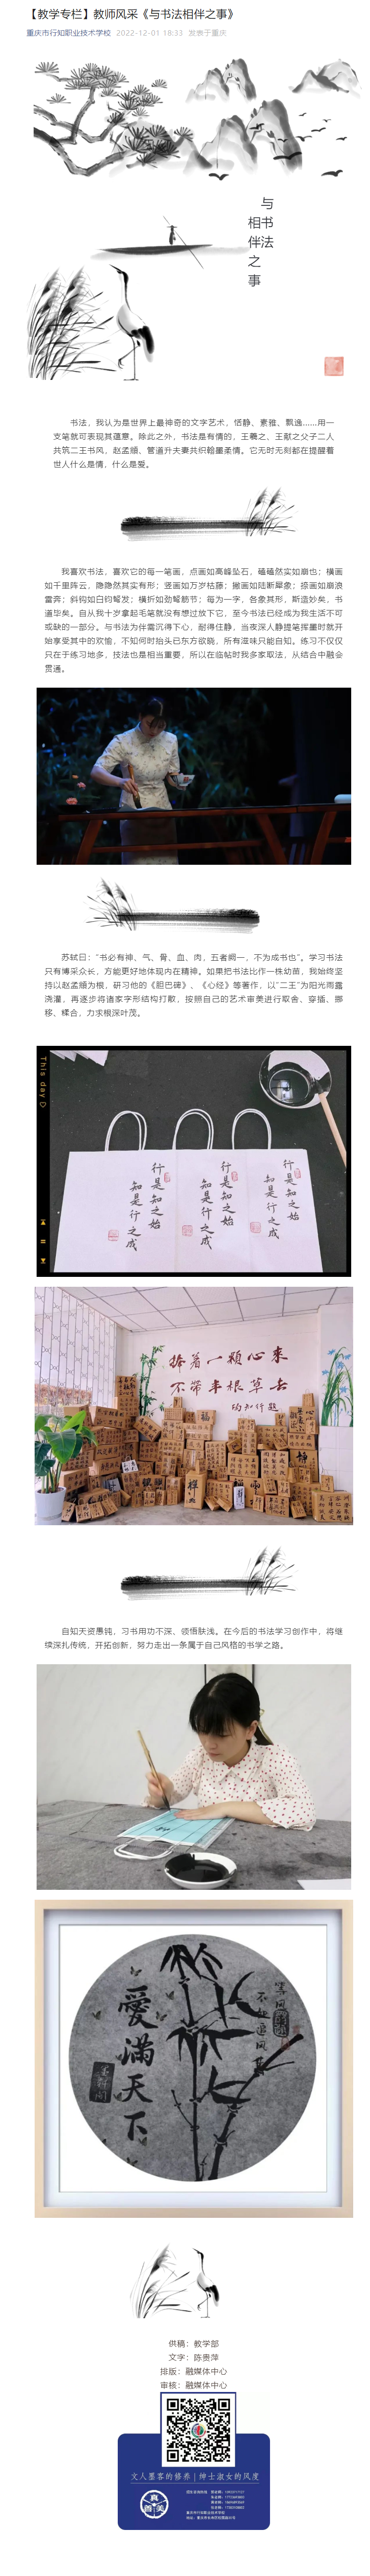 【教学专栏】教师风采《与书法相伴之事》
重庆市行知职业技术学校 2022-12-01 18:33 发表于重庆
与书法
相伴之事
书法，我认为是世界上最神奇的文字艺术，恬静、素雅、飘逸……用一
支笔就可表现其蕴意。除此之外，书法是有情的，王羲之、王献之父子二人
共筑二王书风，赵孟頫、管道升夫妻共织翰墨柔情。它无时无刻都在提醒着
世人什么是情，什么是爱。
我喜欢书法，喜欢它的每一笔画，点画如高峰坠石，磕磕然实如崩也；横画
如千里阵云，隐隐然其实有形；竖画如万岁枯藤；撇画如陆断犀象；捺画如崩浪
雷奔；斜钩如百钧弩发；横折如劲弩筋节；每为一字，各象其形，斯造妙矣，书
道毕矣。自从我十岁拿起毛笔就没有想过放下它，至今书法已经成为我生活不可
或缺的一部分。与书法为伴需沉得下心，耐得住静，当夜深人静提笔挥墨时就开
始享受其中的欢愉，不知何时抬头已东方欲晓，所有滋味只能自知。练习不仅仅
只在于练习地多，技法也是相当重要，所以在临帖时我多家取法，从结合中融会
贯通。
苏轼曰：“书必有神、气、骨、血、肉，五者阙一，不为成书也”。学习书法
只有博采众长，方能更好地体现内在精神。如果把书法比作一株幼苗，我始终坚
持以赵孟頫为根，研习他的《胆巴碑》、《心经》等著作，以“二王”为阳光雨露
浇灌，再逐步将诸家字形结构打散，按照自己的艺术审美进行取舍、穿插、挪
移、糅合，力求根深叶茂。
This day
行是知之始
知是行之成
行是知之始
知是行之成
行是知之始
知是行之成
捧着一颗心来
不带半根草去
自知天资愚钝，习书用功不深、领悟肤浅。在今后的书法学习创作中，将继
续深扎传统，开拓创新，努力走出一条属于自己风格的书学之路。
愛滿天下
供稿：教学部
文字：陈贵萍
排版：融媒体中心
审核：融媒体中心
文人墨客的修养｜绅士淑女的风度
真
善美